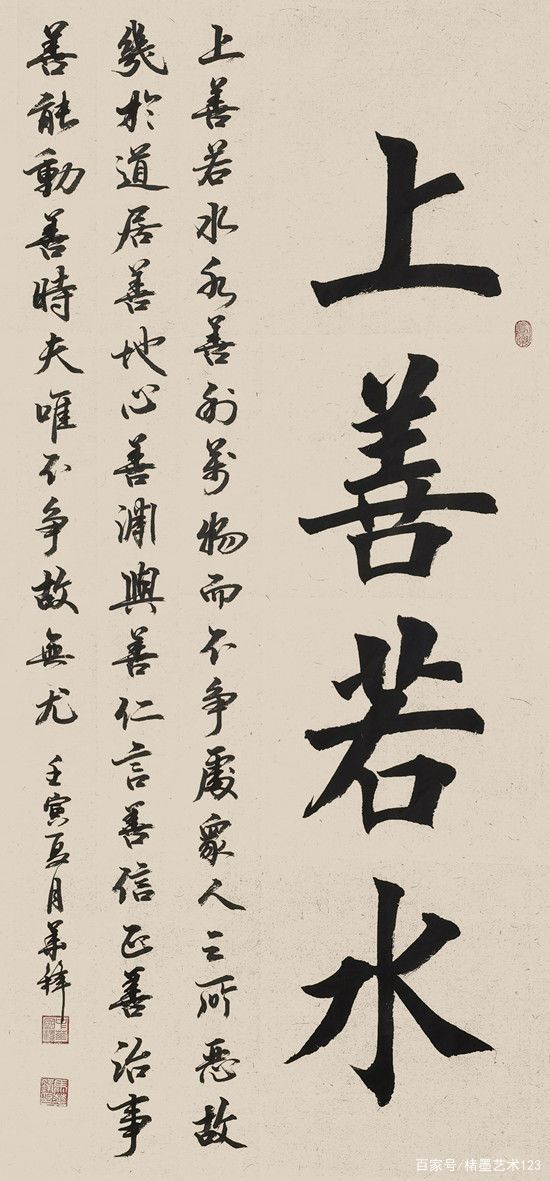 上善若水
上善若水水善利萬物而不争處衆人之所惡故
幾於道居善地心善渊與善仁言善信正善治事
善能動善時夫唯不争故無尤 壬寅夏月
百家号/楮墨艺术123